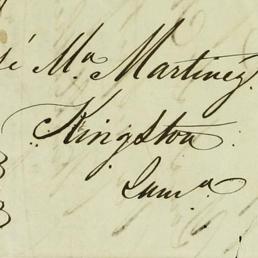 sé Ma Martinez
Kingston
Jama